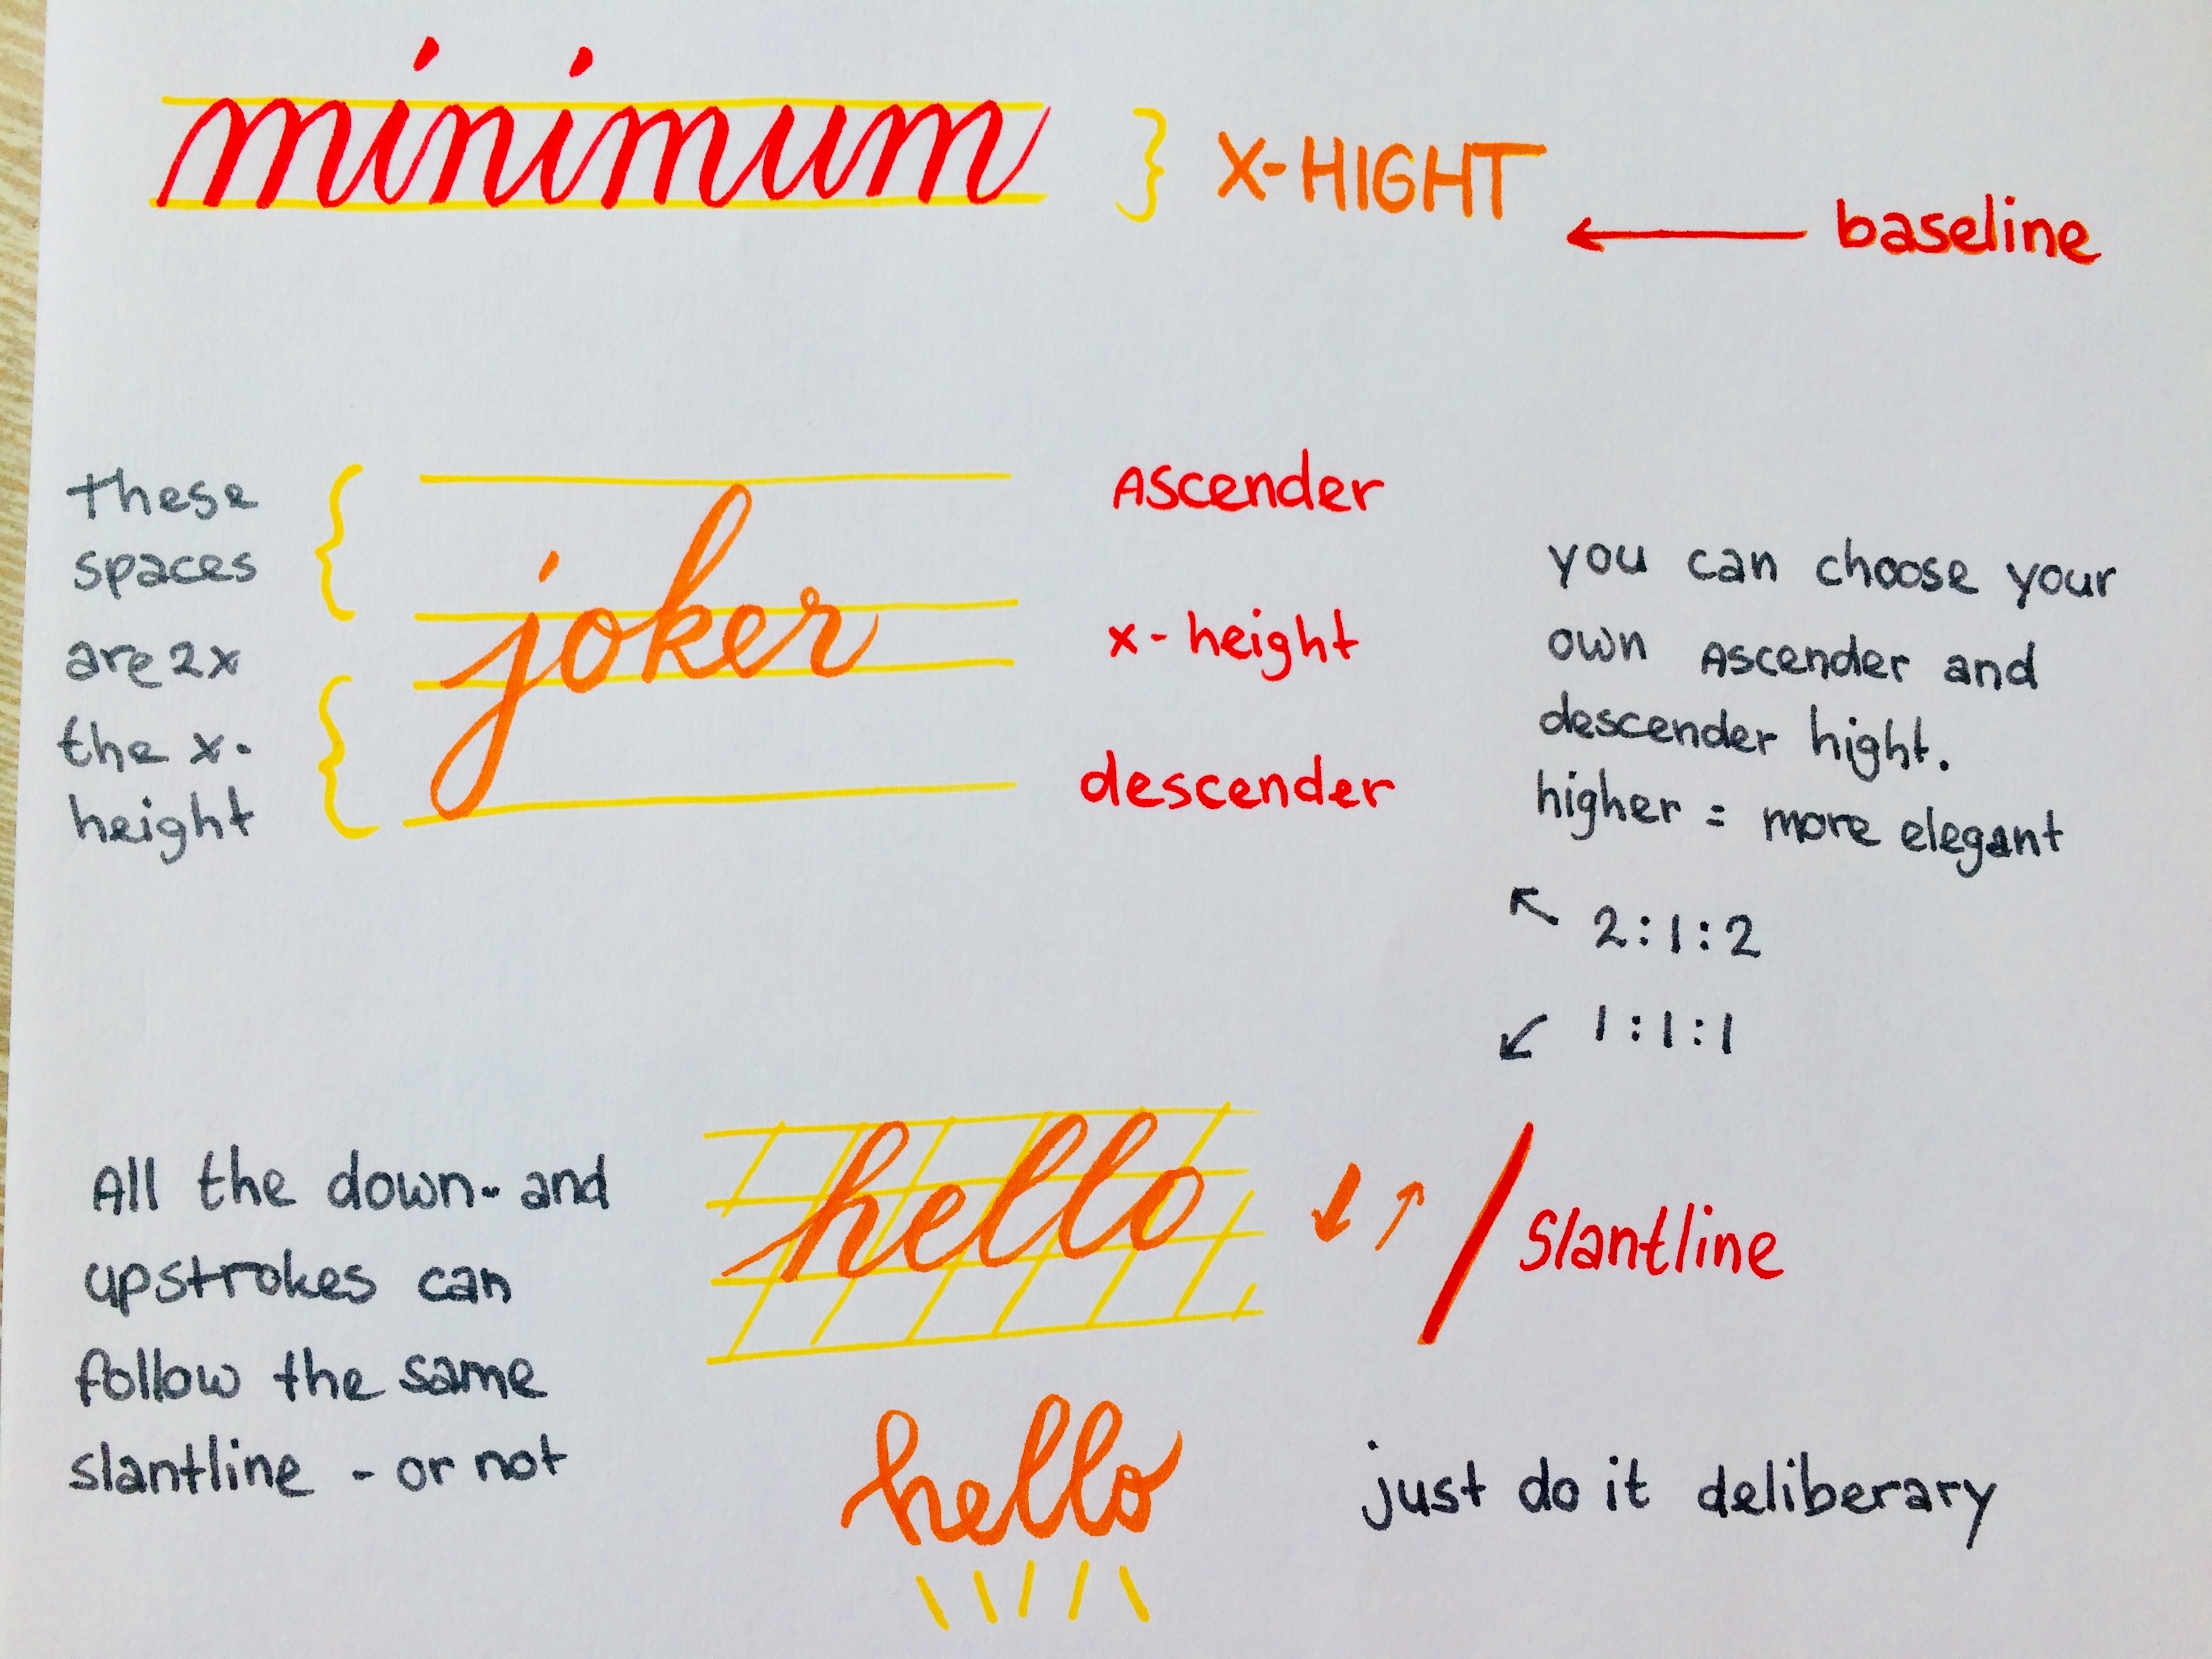 minimum
} X-HIGHT
← baseline
These
spaces
are 2x
the x-
height
joker
Ascender
x-height
descender
you can choose your
own Ascender and
descender hight.
higher = more elegant
↖ 2:1:2
↙ 1:1:1
All the down- and
upstrokes can
follow the same
slantline - or not
hello
↓↑ / Slantline
hello
just do it deliberary